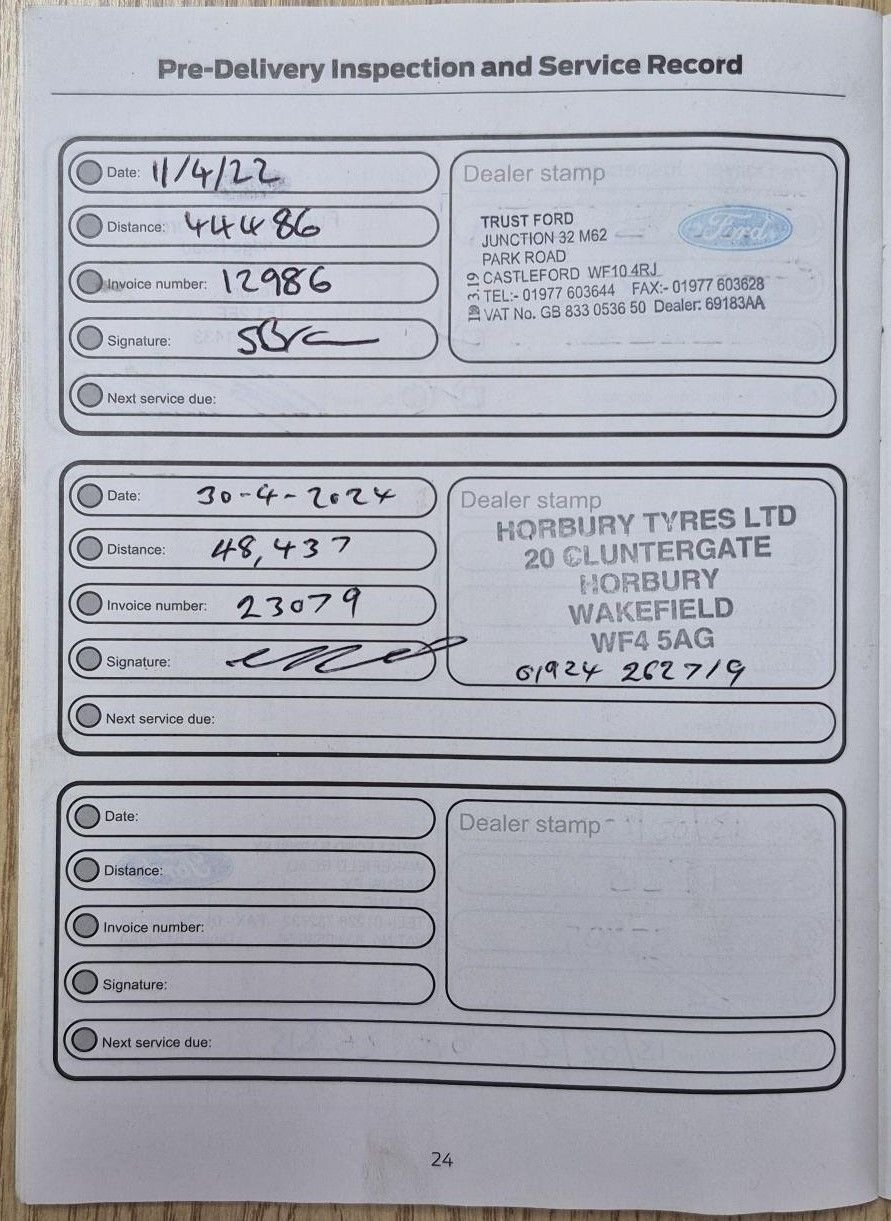 Pre-Delivery Inspection and Service Record
Date: 11/4/22
Distance: 44486
Invoice number: 12986
Signature:
Next service due:
Dealer stamp
Ford
TRUST FORD
JUNCTION 32 M62
PARK ROAD
CASTLEFORD WF10 4RJ
TEL:- 01977 603644 FAX:- 01977 603628
VAT No. GB 833 0536 50 Dealer: 69183AA
Date: 30-4-2024
Distance: 48,437
Invoice number: 23079
Signature:
Next service due:
Dealer stamp
HORBURY TYRES LTD
20 CLUNTERGATE
HORBURY
WAKEFIELD
WF4 5AG
01924 262719
Date:
Distance:
Invoice number:
Signature:
Next service due:
Dealer stamp
24